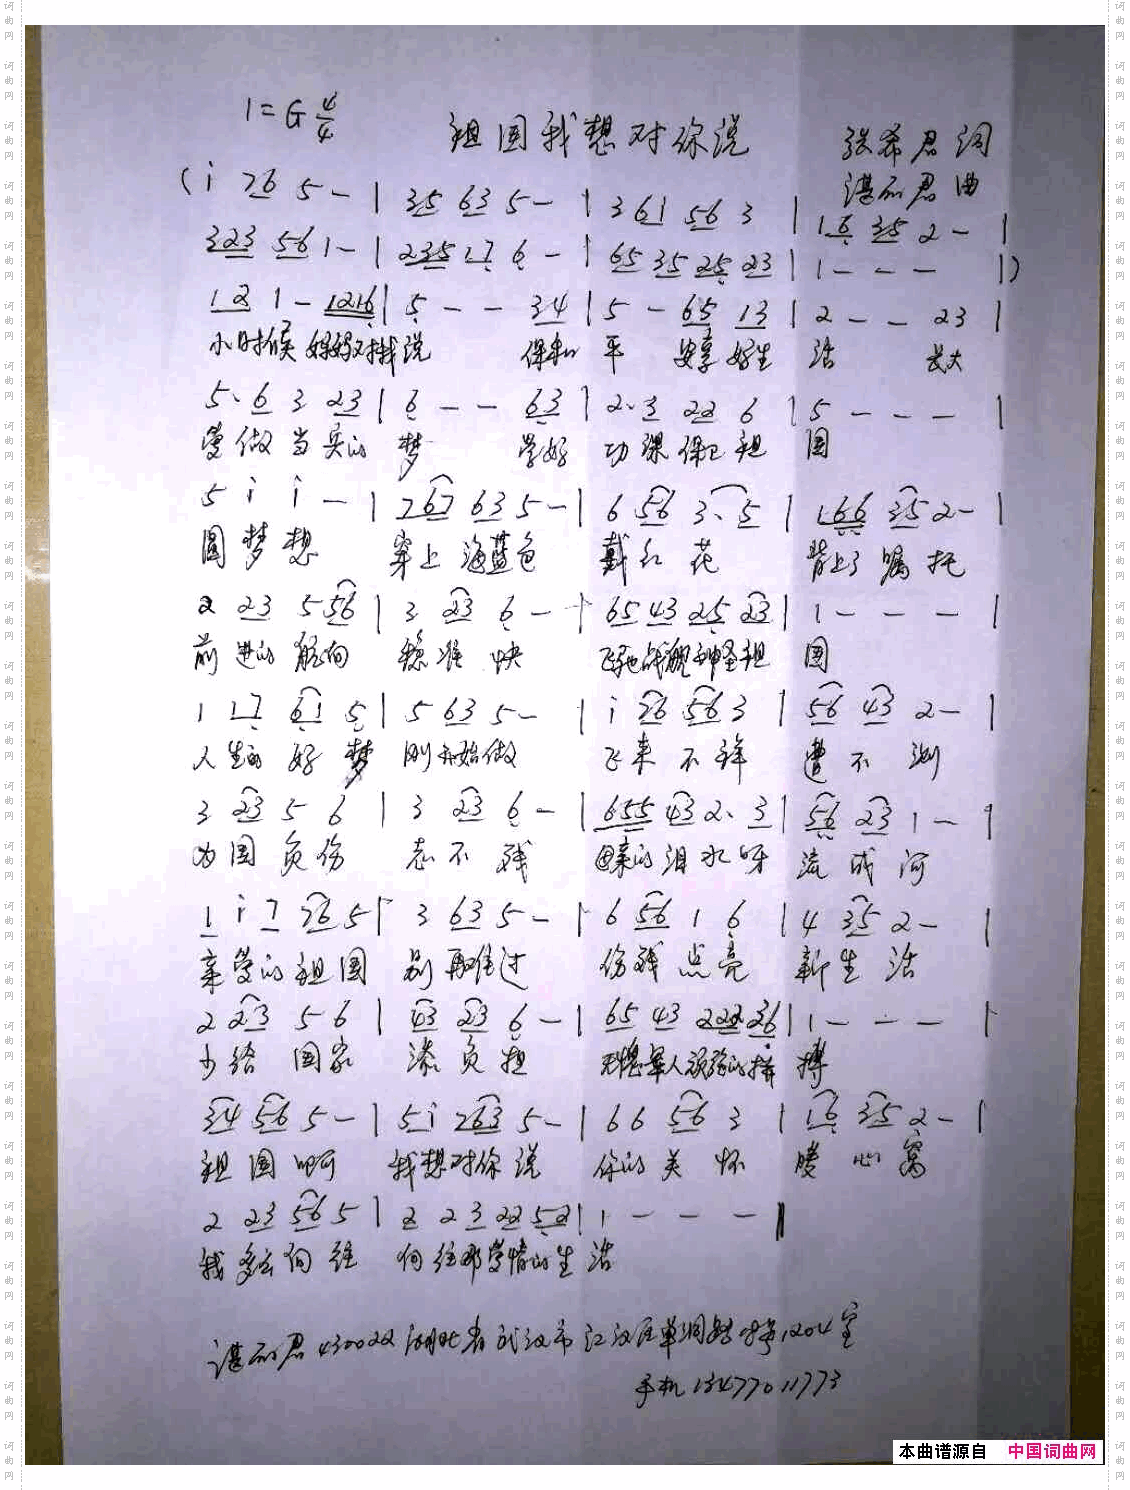 1=G 4/4
祖国我想对你说
张希君 词
(i 76 5 - | 35 63 5 - | 3 61 56 3 | 16 35 2 - |
323 56 1 - | 235 17 6 - | 65 35 25 23 | 1 - - - |)
12 1 - 1216 | 5 - - 34 | 5 - 65 13 | 2 - - 23 |
小时候 妈妈对我说 保和 平 安享好生 活 长大
5. 6 3 23 | 6 - - 63 | 2. 3 22 6 | 5 - - - |
要做当兵的 梦 学好 功课保卫祖 国
5 i i - | 767 63 5 - | 6 56 3. 5 | 166 35 2 - |
圆梦想 穿上海蓝色 戴红花 背上了嘱托
2 23 5 56 | 3 23 6 - | 65 43 25 23 | 1 - - - |
前进的航向 稳准快 国
1 17 61 5 | 5 63 5 - | i 76 56 3 | 56 43 2 - |
人生的好梦 刚开始做 飞来不祥 遭不测
3 23 5 6 | 3 23 6 - | 655 43 2. 3 | 56 23 1 - |
为国负伤 志不残 母亲的泪水呀 流成河
1 i 7 76 5 | 3 63 5 - | 6 56 1 6 | 4 35 2 - |
亲爱的祖国 别再难过 伤残点亮 新生活
2 23 5 6 | 43 23 6 - | 65 43 222 36 | 1 - - - |
少给国家 添负担 无愧军人顽强的拼 搏
34 56 5 - | 5i 763 5 - | 66 56 3 | 16 35 2 - |
祖国啊 我想对你说 你的关怀 暖心窝
2 23 56 5 | 2 23 22 52 | 1 - - - ‖
我多么向往 向往那爱情的生 活
430022 湖北省武汉市江汉区单洞路 1204室
手机 13477011773
本曲谱源自 中国词曲网
词曲网